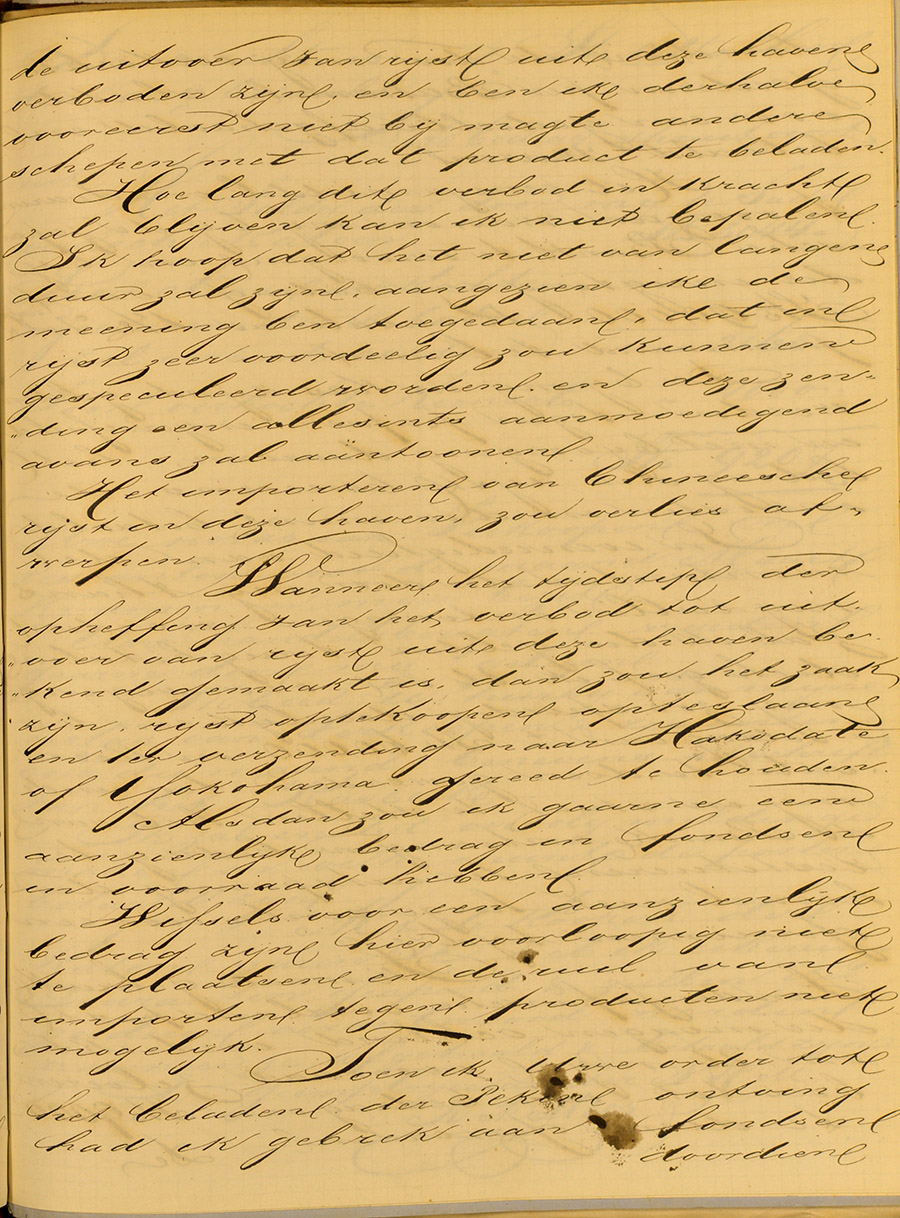 de uitvoer van rijst uit deze haven
verboden zijn. en ben ik derhalve
vooreerst niet bij magte andere
schepen met dat product te beladen.
Hoe lang dit verbod in kracht
zal blijven kan ik niet bepalen.
Ik hoop dat het niet van langen
duur zal zijn, aangezien ik de
meening ben toegedaan, dat in
rijst zeer voordeelig zou kunnen
gespeculeerd worden. en deze zen„
„ding een allesints aanmoedigend
avans zal aantoonen
Het importeren van Chineesche
rijst in deze haven, zou verlies af„
werpen. Wanneer het tijdstip der
opheffing van het verbod tot uit„
„voer van rijst uit deze haven be„
„kend gemaakt is, dan zou het zaak
zijn, rijst optekoopen opteslaan
en ter verzending naar Hakodate
of Yokohama gereed te houden.
Alsdan zou ik gaarne een
aanzienlijk bedrag in fondsen
in voorraad hebben.
Wissels voor een aanzienlijk
bedrag zijn hier voorloopig niet
te plaatsen en de ruil van
importen tegen producten niet
mogelijk.
Toen ik Uwe order tot
het beladen der Pekin ontving
had ik gebrek aan fondsen
doordien